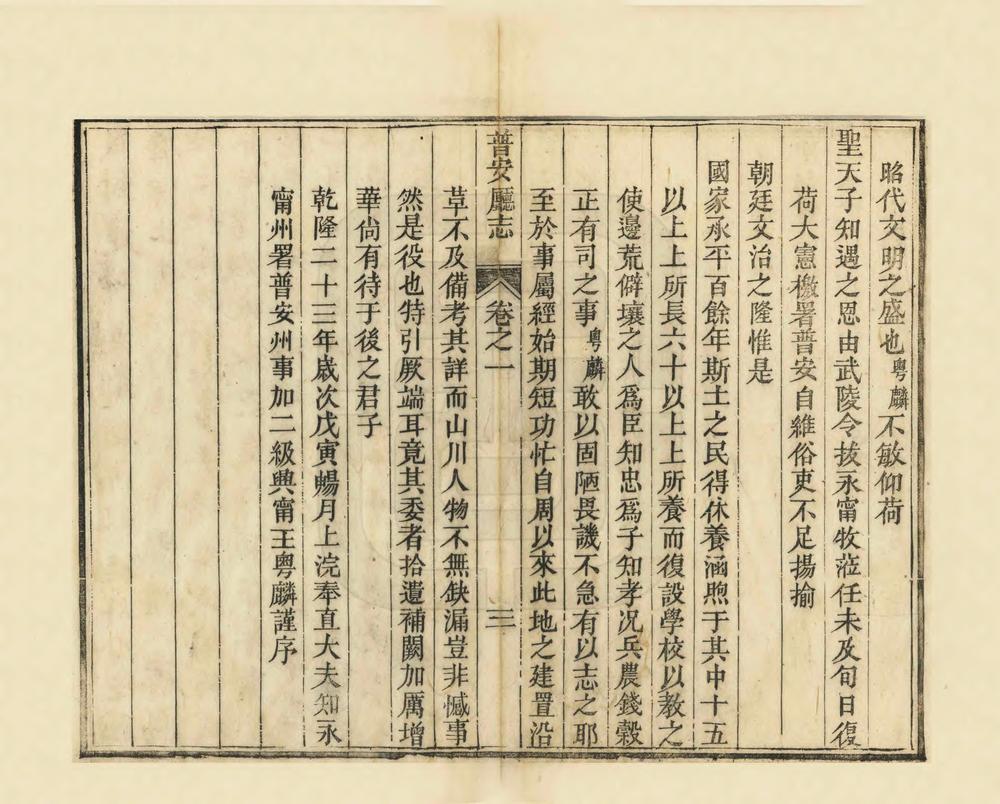 昭代文明之盛也粤麟不敏仰荷
聖天子知遇之恩由武陵令拔永甯牧蒞任未及旬日復
荷大憲檄署普安自維俗吏不足揚揄
朝廷文治之隆惟是
國家承平百餘年斯土之民得休養涵煦于其中十五
以上上所長六十以上上所養而復設學校以教之
使邊荒僻壤之人爲臣知忠爲子知孝况兵農錢穀
正有司之事粤麟敢以固陋畏譏不急有以志之耶
至於事屬經始期短功忙自周以來此地之建置沿
普安廳志 卷之一 三
革不及備考其詳而山川人物不無缺漏豈非憾事
然是役也特引厥端耳竟其委者拾遺補闕加厲增
華尙有待于後之君子
乾隆二十三年歲次戊寅暢月上浣奉直大夫知永
甯州署普安州事加二級興甯王粤麟謹序